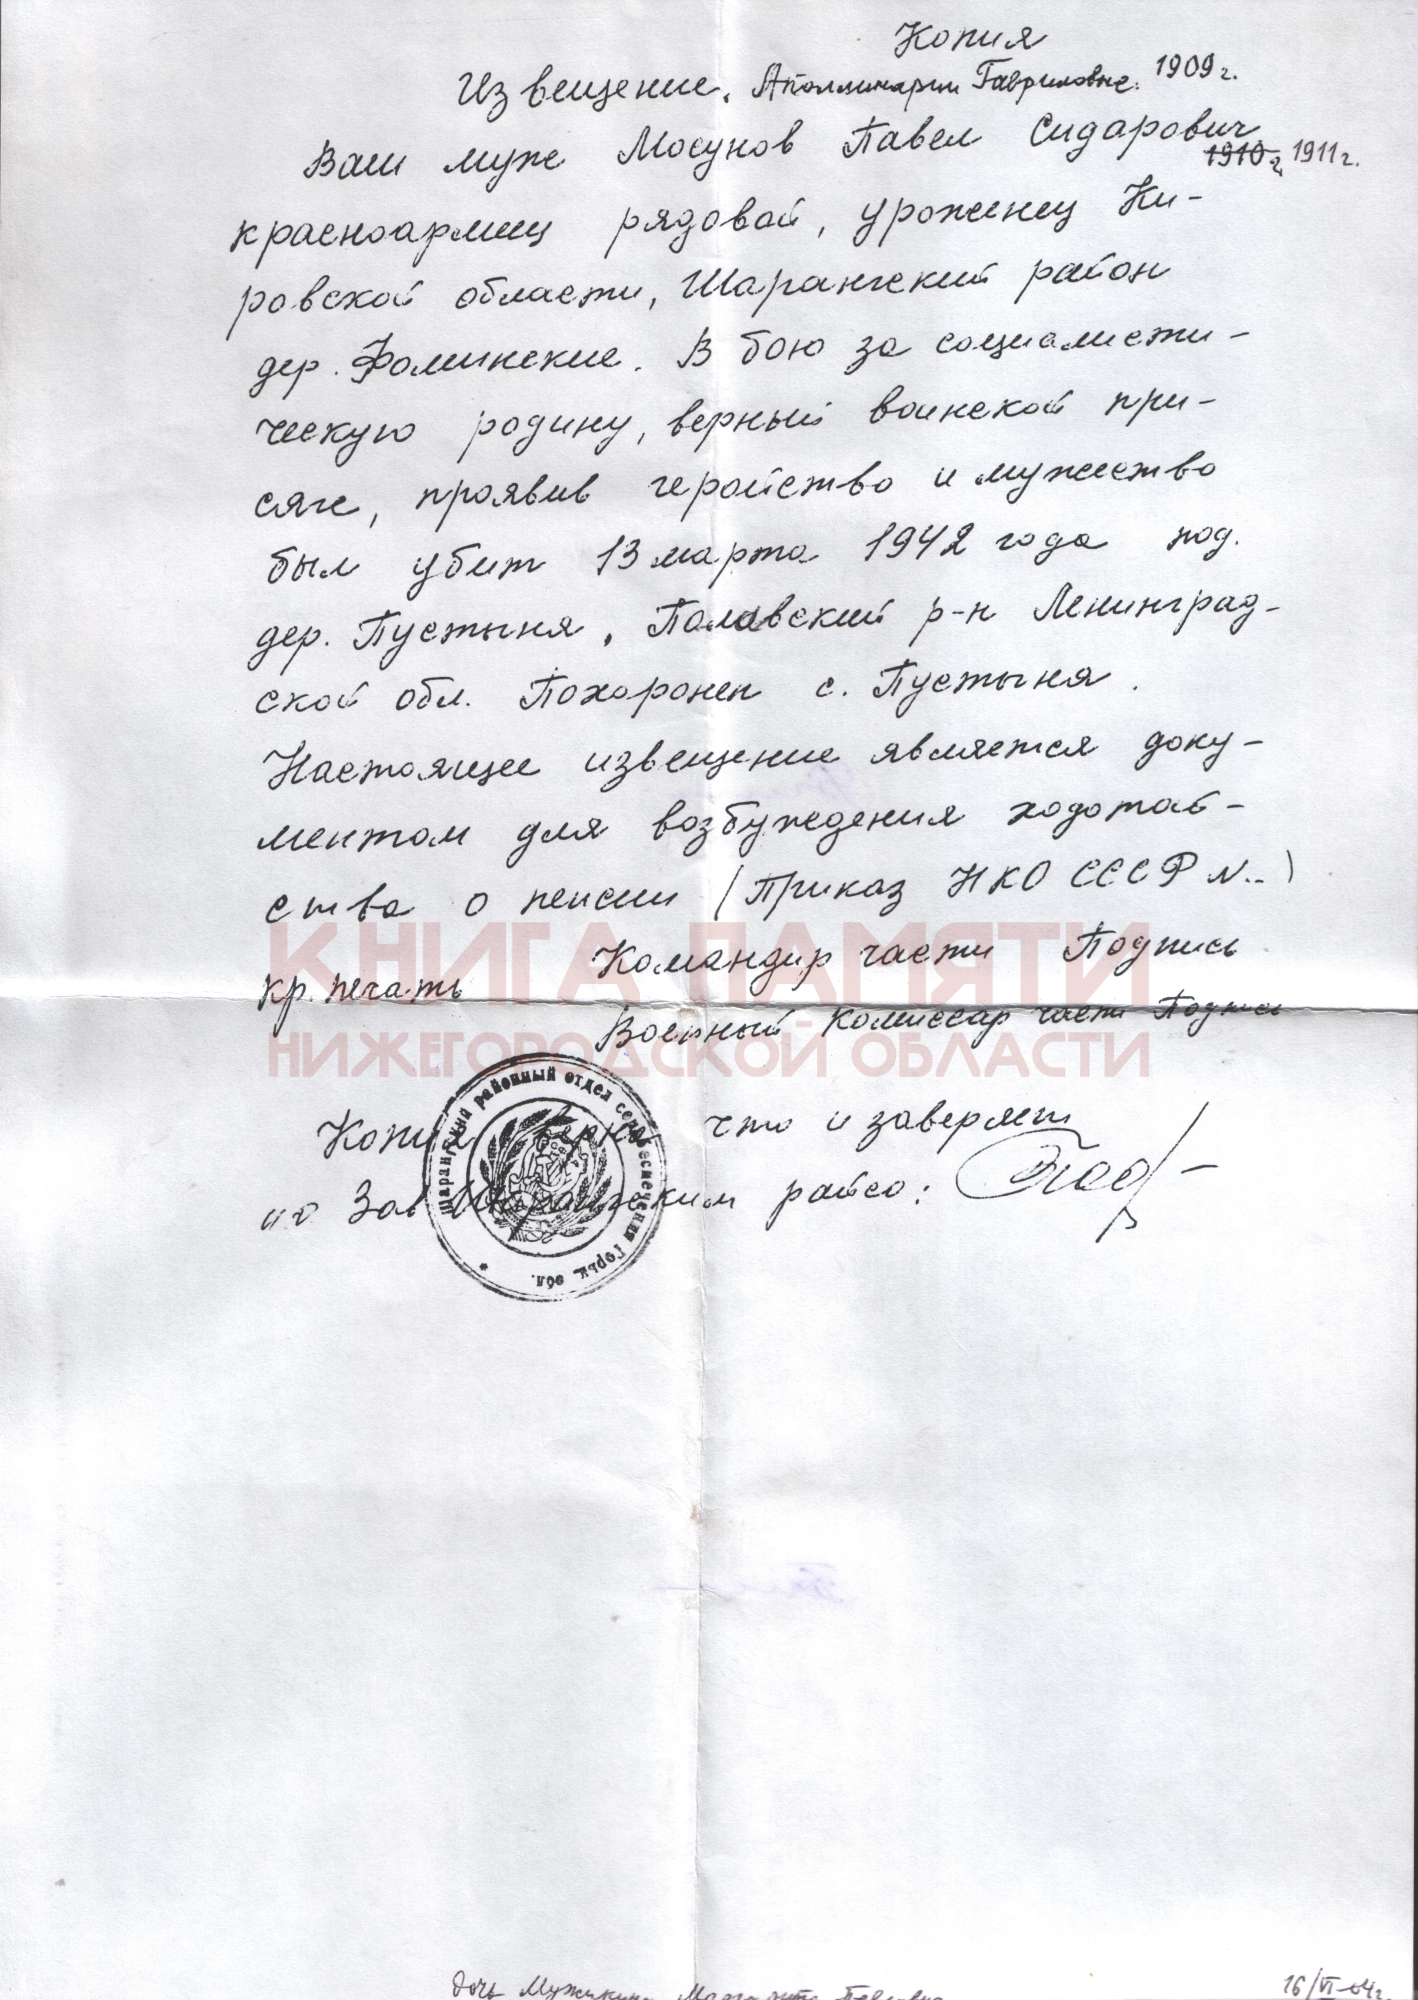 Копия
Извещение. Аполлинарии Гавриловне. 1909 г.
Ваш муж Мосунов Павел Сидарович
1910 г. 1911 г.
красноармеец рядовой, уроженец Ки-
ровской области, Шарангский район
дер. Фоминские. В бою за социалисти-
ческую родину, верный воинской при-
сяге, проявив геройство и мужество
был убит 13 марта 1942 года под.
дер. Пустыня, Полавский р-н Ленинград-
ской обл. Похоронен с. Пустыня.
Настоящее извещение является доку-
ментом для возбуждения ходотай-
ства о пенсии (Приказ НКО СССР №..)
КНИГА ПАМЯТИ
Командир части Подпись
кр. печать
Военный комиссар части Подпись
НИЖЕГОРОДСКОЙ ОБЛАСТИ
Копия верна что и заверяет
Шарангский районный отдел собеспечения Горьк. обл.
ио Зав Шарангским райсо:
дочь Маргарита Павловна
16/VI-04г.